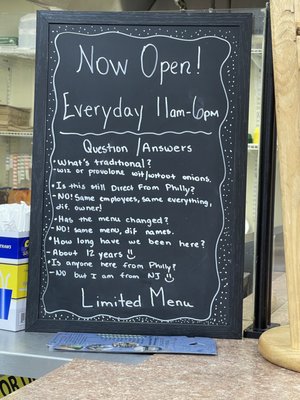 Now Open!
Everyday 11am-6pm
Question/Answers
• What's traditional?
wiz or provolone wit/witout onions.
• Is this still Direct From Philly?
• NO! Same employees, same everything,
dif. owner!
• Has the menu changed?
NO! same menu, dif names.
• How long have we been here?
- About 12 years
• Is anyone here from Philly?
- No but I am from NJ
Limited Menu
STRAWS